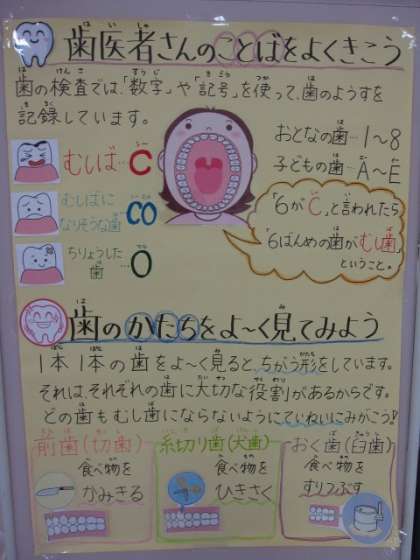 歯医者さんのことばをよくきこう
歯の検査では、「数字」や「記号」を使って、歯のようすを
記録しています。
むしば…C
むしばに
なりそうな歯…CO
ちりょうした
歯…O
おとなの歯…1〜8
子どもの歯…A〜E
「6がC」と言われたら
「6ばんめの歯がむし歯」
ということ。
歯のかたちをよ〜く見てみよう
1本1本の歯をよ〜く見ると、ちがう形をしています。
それは、それぞれの歯に大切な役割があるからです。
どの歯もむし歯にならないようにていねいにみがこう!
前歯(切歯)
食べ物を
かみきる
糸切り歯(犬歯)
食べ物を
ひきさく
おく歯(臼歯)
食べ物を
すりつぶす